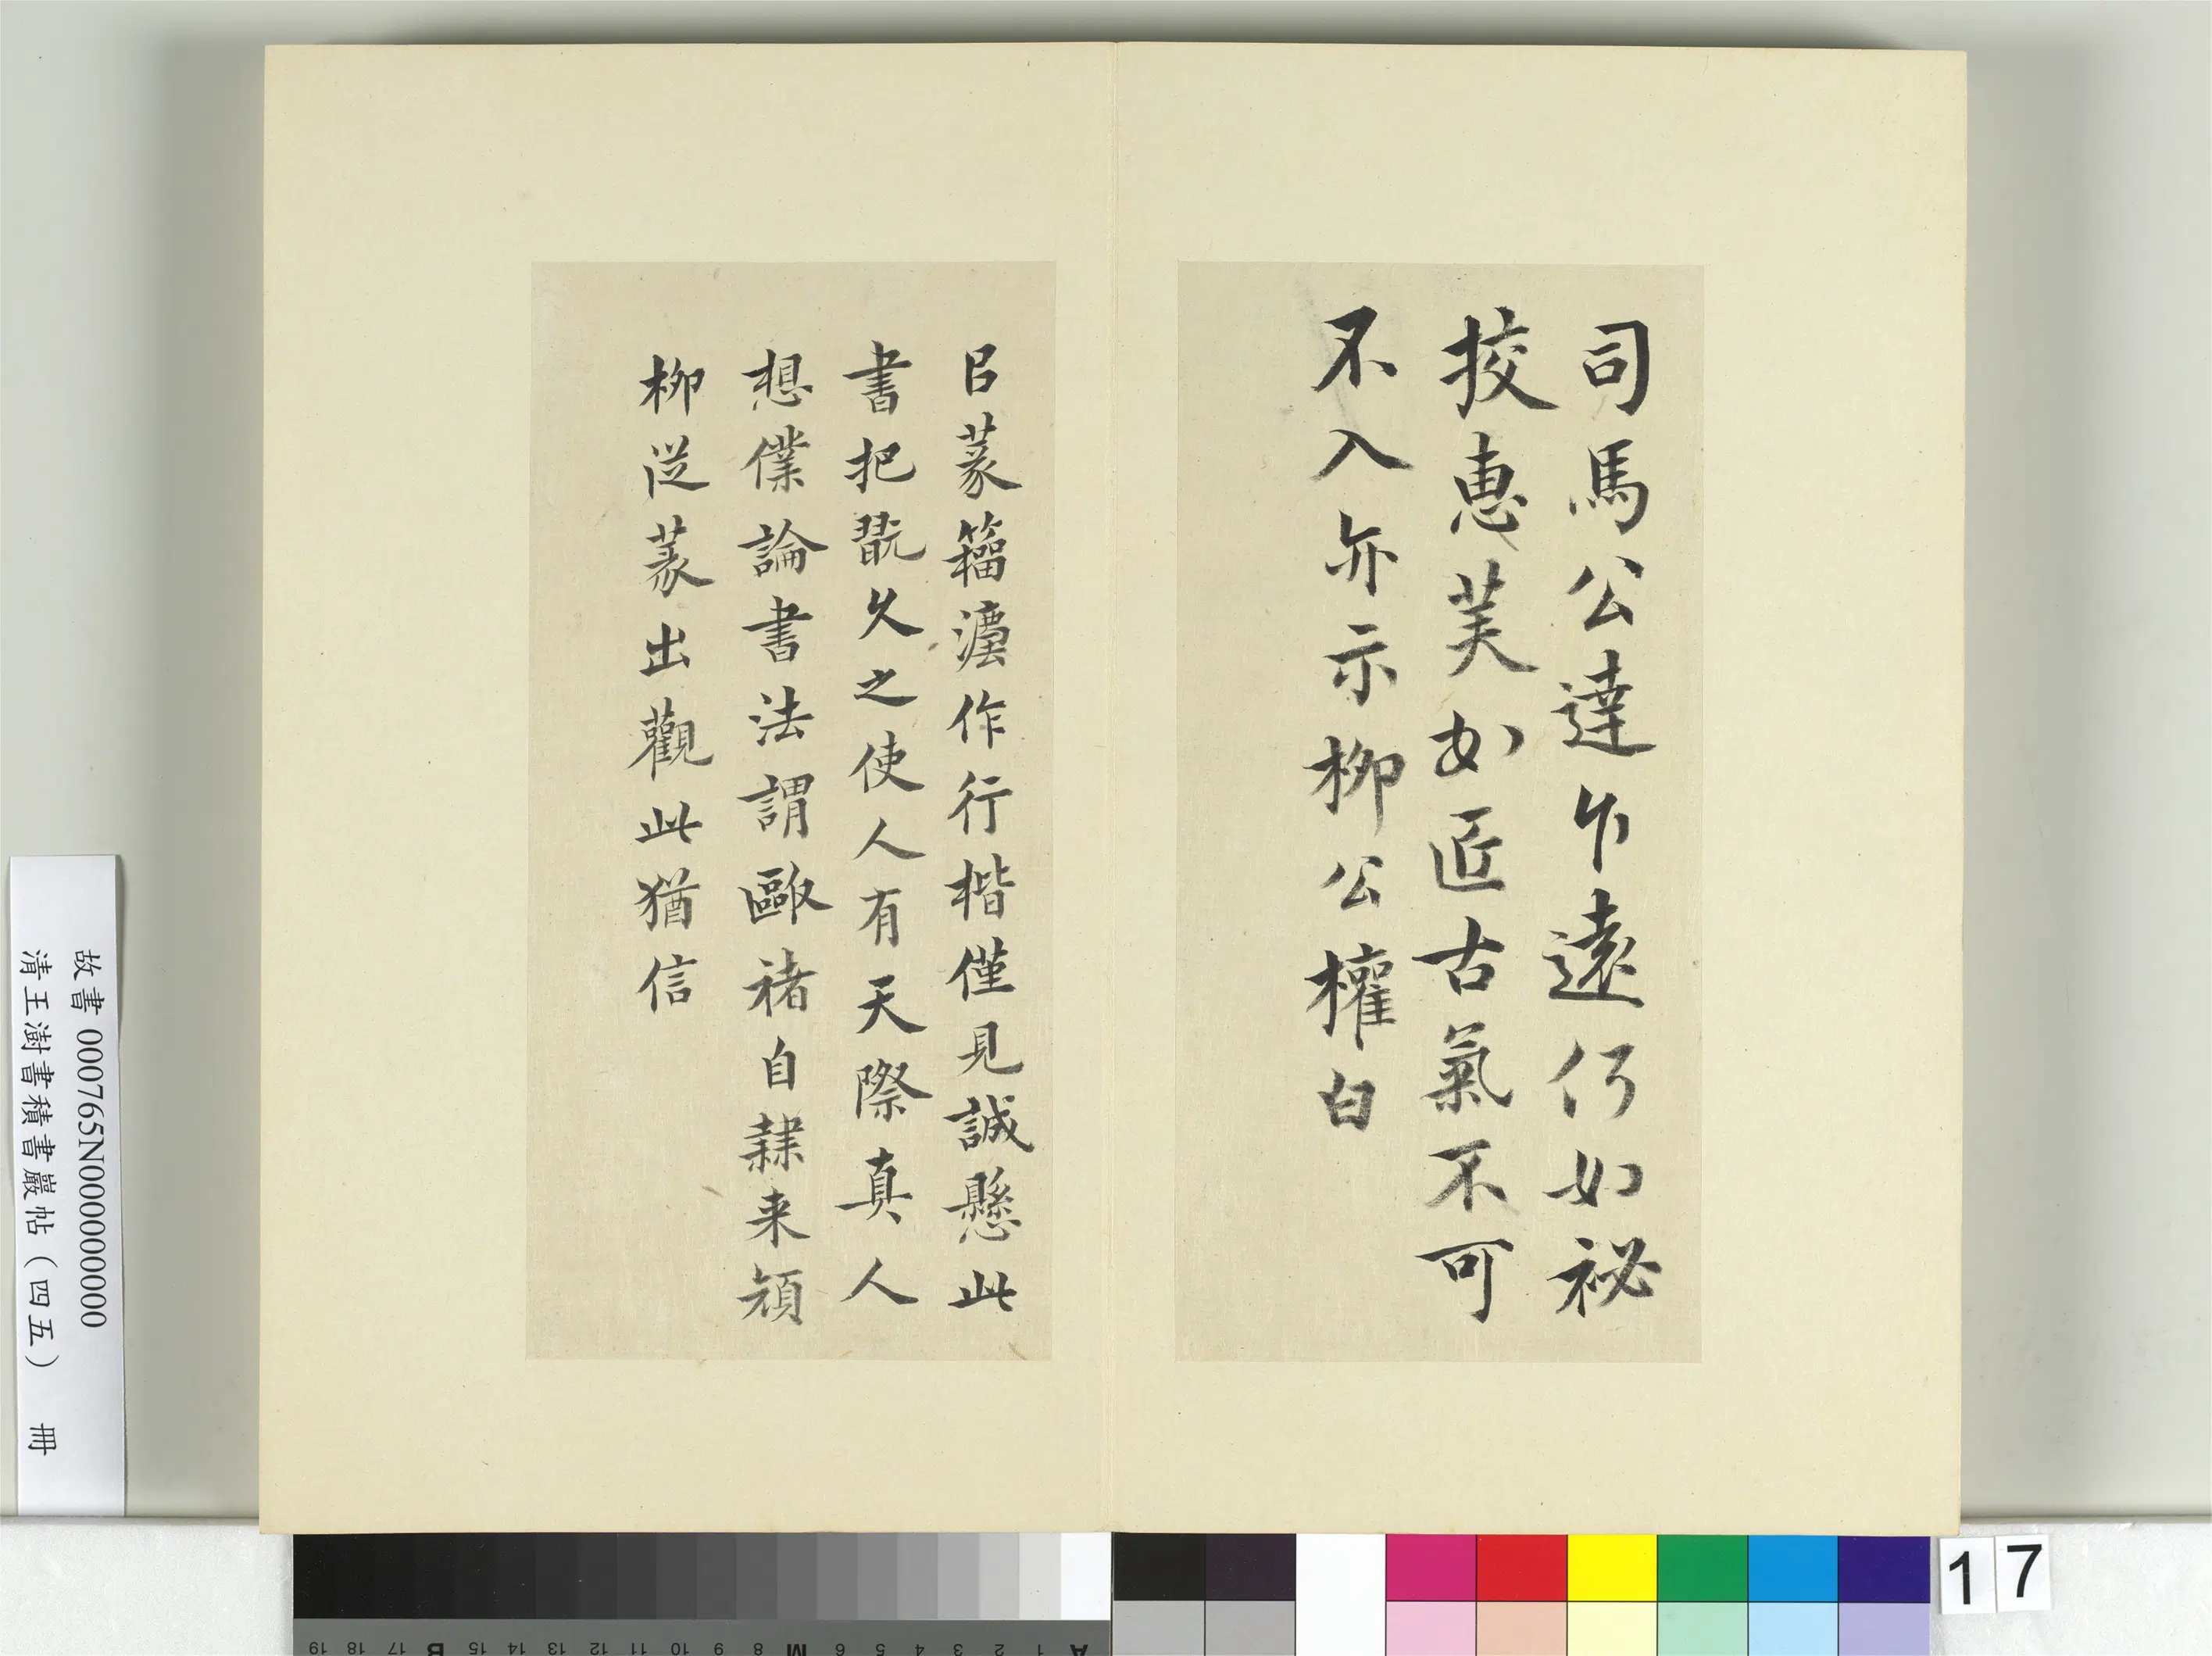 司馬公達乍遠何如祕
挍惠芙如近古氣不可
不入尓示柳公權白
㠯篆籀灋作行楷僅見誠懸此
書把翫久之使人有天際真人
想僕論書法謂歐褚自隸来顔
柳従篆出觀此猶信
故書 000765N000000000
清王澍書積書巖帖（四五） 冊
17
A 1 2 3 4 5 6 M 8 9 10 11 12 13 14 15 B 17 18 19